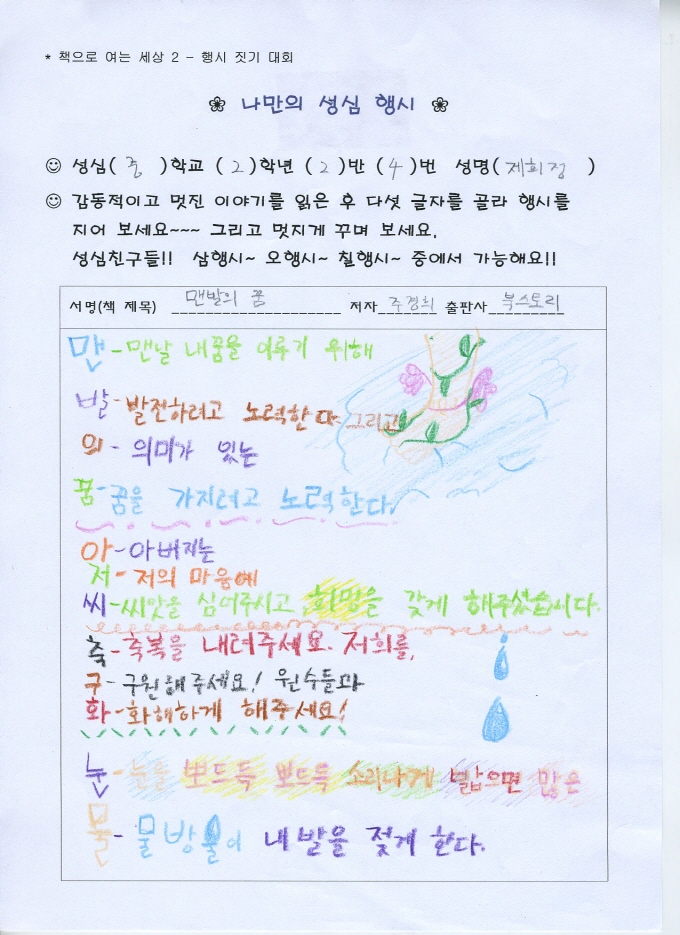 * 책으로 여는 세상 2 - 행시 짓기 대회
❀ 나만의 성심 행시 ❀
☺ 성심( 중 )학교 ( 2 )학년 ( 2 )반 ( 4 )번 성명( 제희정 )
☺ 감동적이고 멋진 이야기를 읽은 후 다섯 글자를 골라 행시를
지어 보세요~~~ 그리고 멋지게 꾸며 보세요.
성심친구들!! 삼행시~ 오행시~ 칠행시~ 중에서 가능해요!!
서명(책 제목) 맨발의 꿈 저자 주경희 출판사 북스토리
맨-맨날 내꿈을 이루기 위해
발-발전하려고 노력한다 그리고
의-의미가 있는
꿈-꿈을 가지려고 노력한다.
아-아버지는
저-저의 마음에
씨-씨앗을 심어주시고 희망을 갖게 해주셨습니다.
축-축복을 내려주세요. 저희를,
구-구원해주세요! 원수들과
화-화해하게 해주세요!
눈-눈을 뽀드득 뽀드득 소리나게 밟으면 많은
물-물방울이 내발을 젖게 한다.